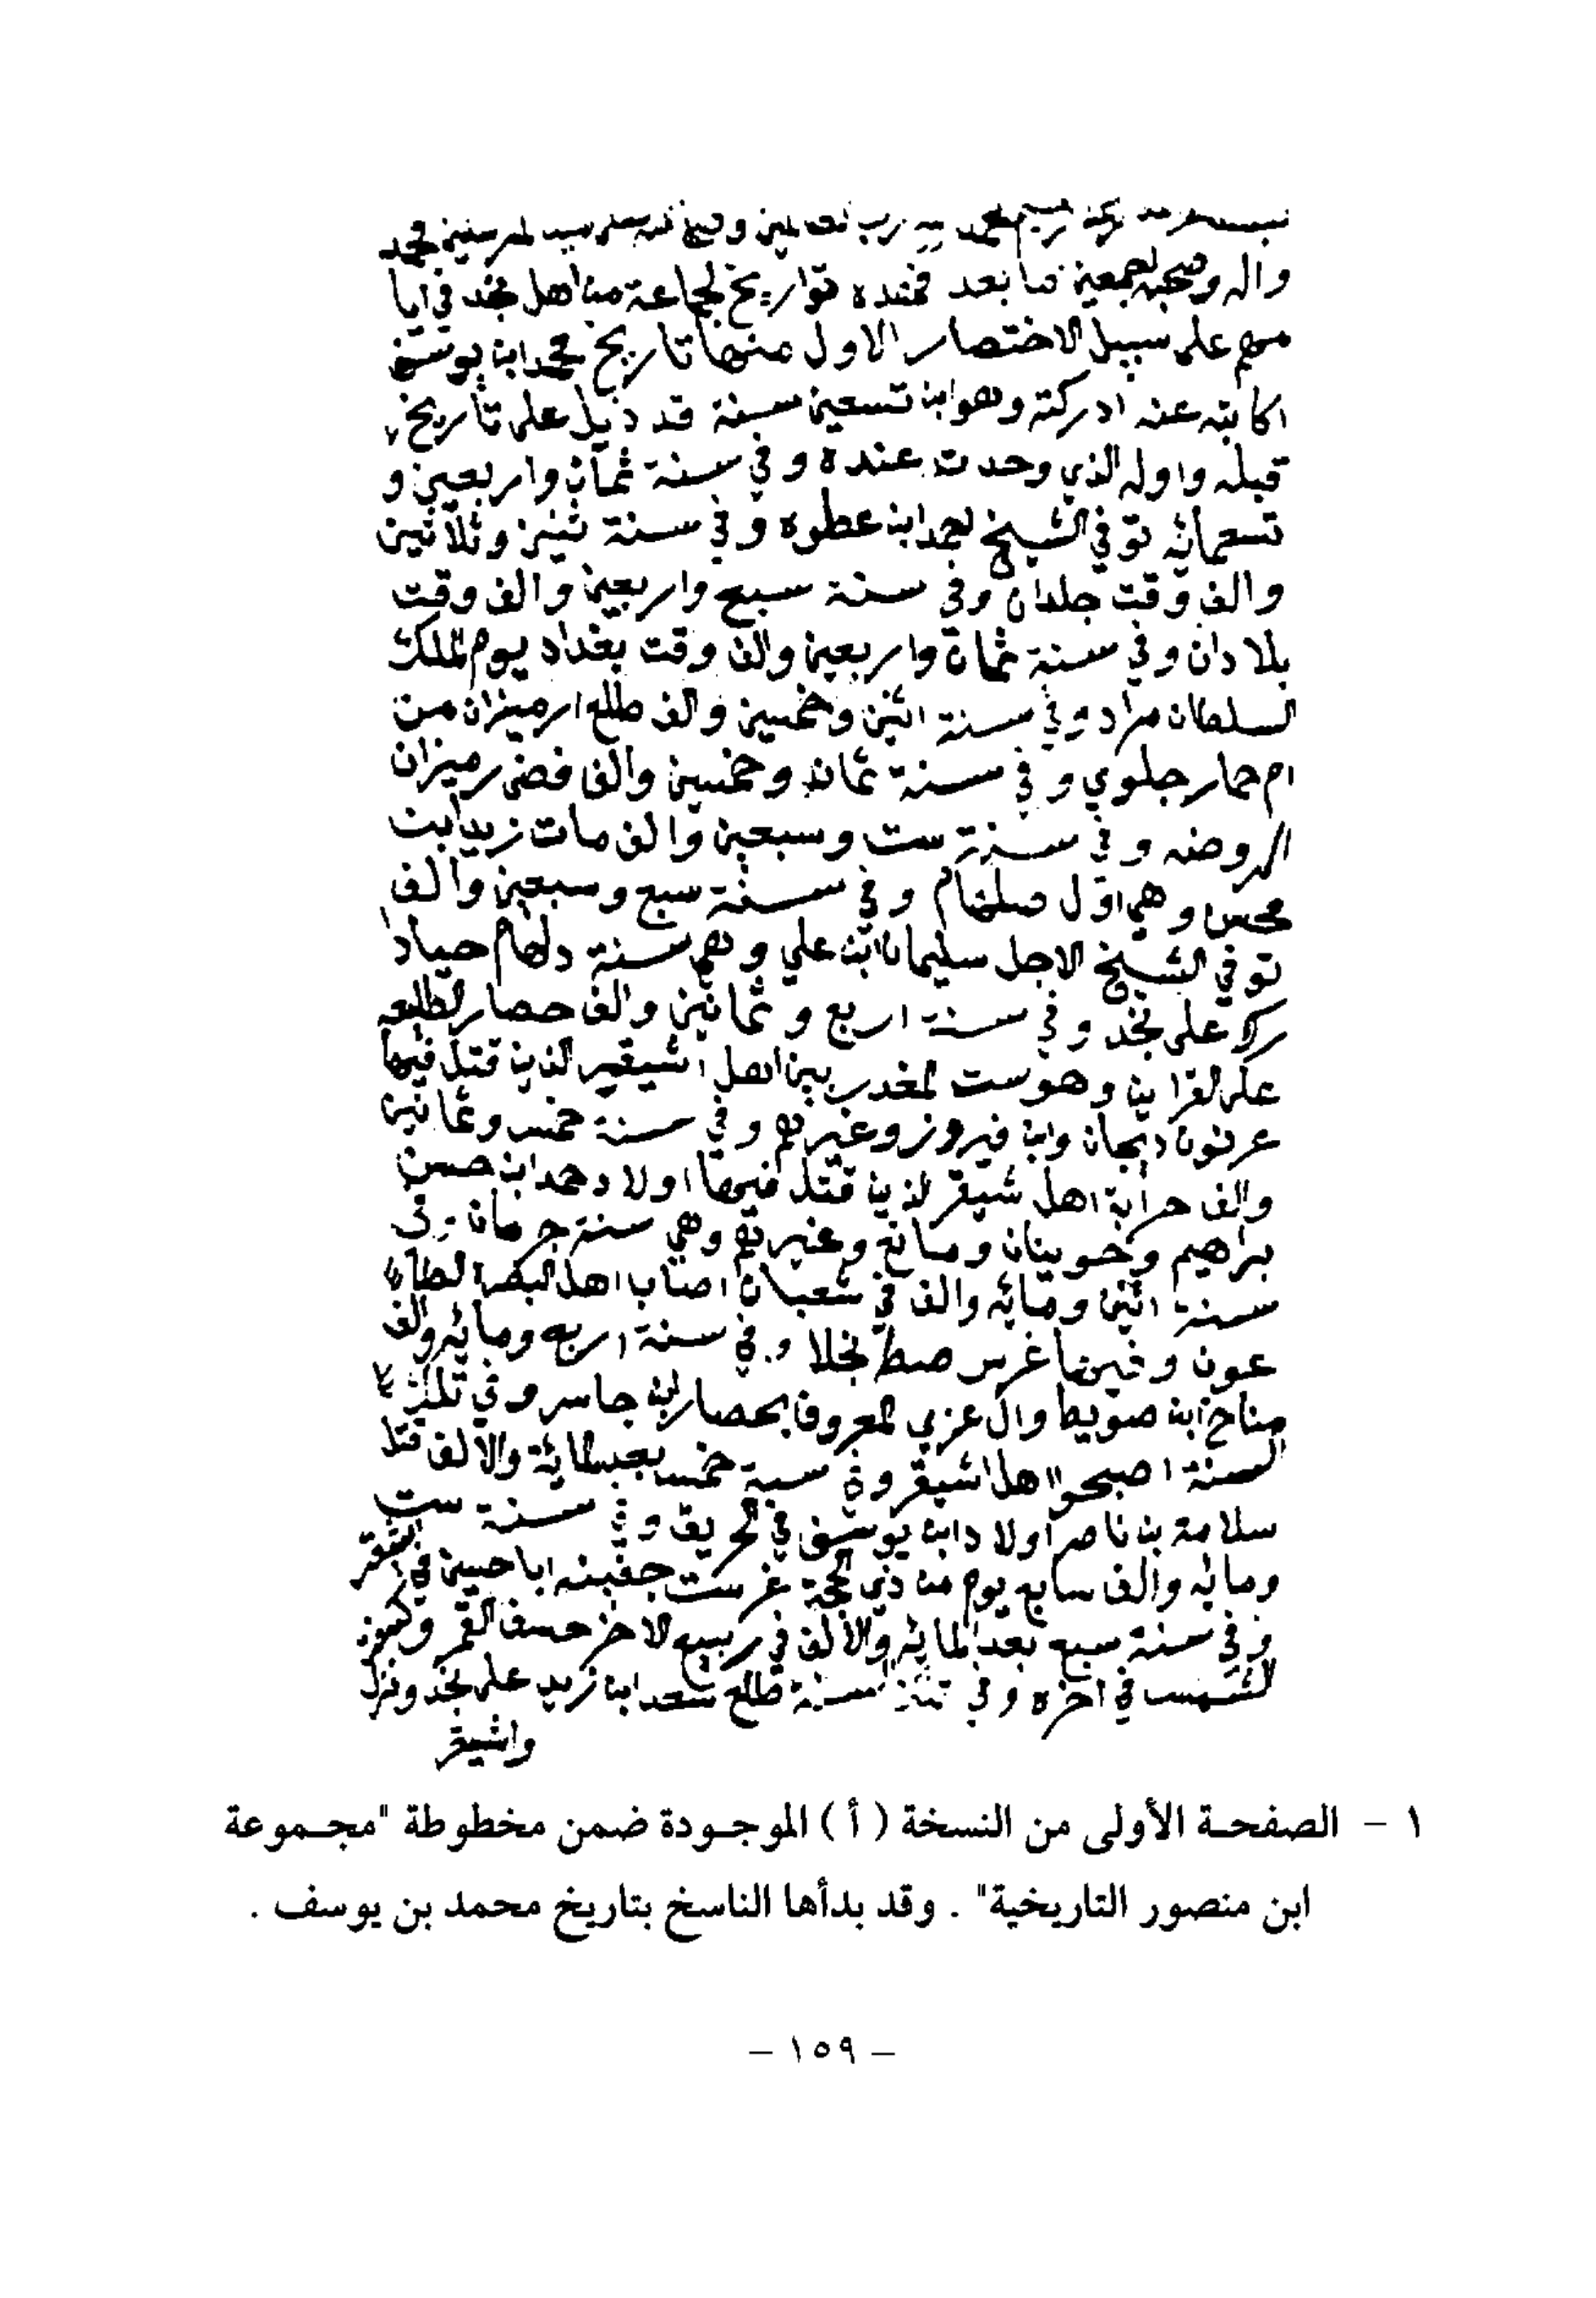 واله وصحبه اجمعين اما بعد فهذه تواريخ لجماعة من اهل نجد في ايا
مهم على سبيل الاختصار الاول منها تاريخ محمد ابن يوسف
عنه ادركته وهو ابن تسعين سنة قد ذيل على تأريخ
قبله واوله الذي وجدت عنده و في سنة ثمان واربعين و
تسعمائه توفي الشيخ احمد ابن عطوه و في سنة ثنين وثلاثين
والف وقت جلدان وفي سنة سبع واربعين والف وقت
بلادان و في سنة ثمان واربعين والف وقت بغداد يوم تملك
السلطان مراد و في سنة اثنين وخمسين والف طلع ارميزان من
ام حمار جلوي و في سنة ثمان وخمسين والف رميزان
الروضه و في سنة ست وسبعين والف مات زيد ابن
محسن وهي اول صلهام و في سنة سبع وسبعين والف
توفي الشيخ الاجل سليمان ابن علي وهي سنة دلهام
على نجد و في سنة اربع و ثمانين والف حصار
على وهوست المغدر بين اهل اشيقر الذين قتل فيها
وابن فيروز وغيرهم و في سنة خمس وثمانين
والف حرابة اهل شيقر الذين قتل فيها اولاد محمد ابن حسن
براهيم وخوينان ومانع وغيرهم وهي سنة جرمان و في
سنة اثنين ومائه والف في شعبان اصاب اهل البصرا الطا
عون وفيها غرس نخلا و في سنة اربع ومائه والف
مناخ ابن صويط وال عزي المعروف بحصار ابن جاسر و في تلك
السنة اصبحوا اهل اشيقر و في سنة خمس بعد المائة والالف قتل
سلامة بن ناصر اولاد ابن يوسف في الحريق و في سنة ست
ومائه والف سابع يوم من ذي الحجة غرست ابا حسين في اشيقر
و في سنة سبع بعد المائه والالف في ربيع الاخر خسف القمر وكسفت
الشمس في اخره و في تلك السنة طلع سعد ابن زيد على نجد ونزل
واشيقر
١ - الصفحة الأولى من النسخة ( أ ) الموجودة ضمن مخطوطة "مجموعة
ابن منصور التاريخية" . وقد بدأها الناسخ بتاريخ محمد بن يوسف .
- ١٥٩ -